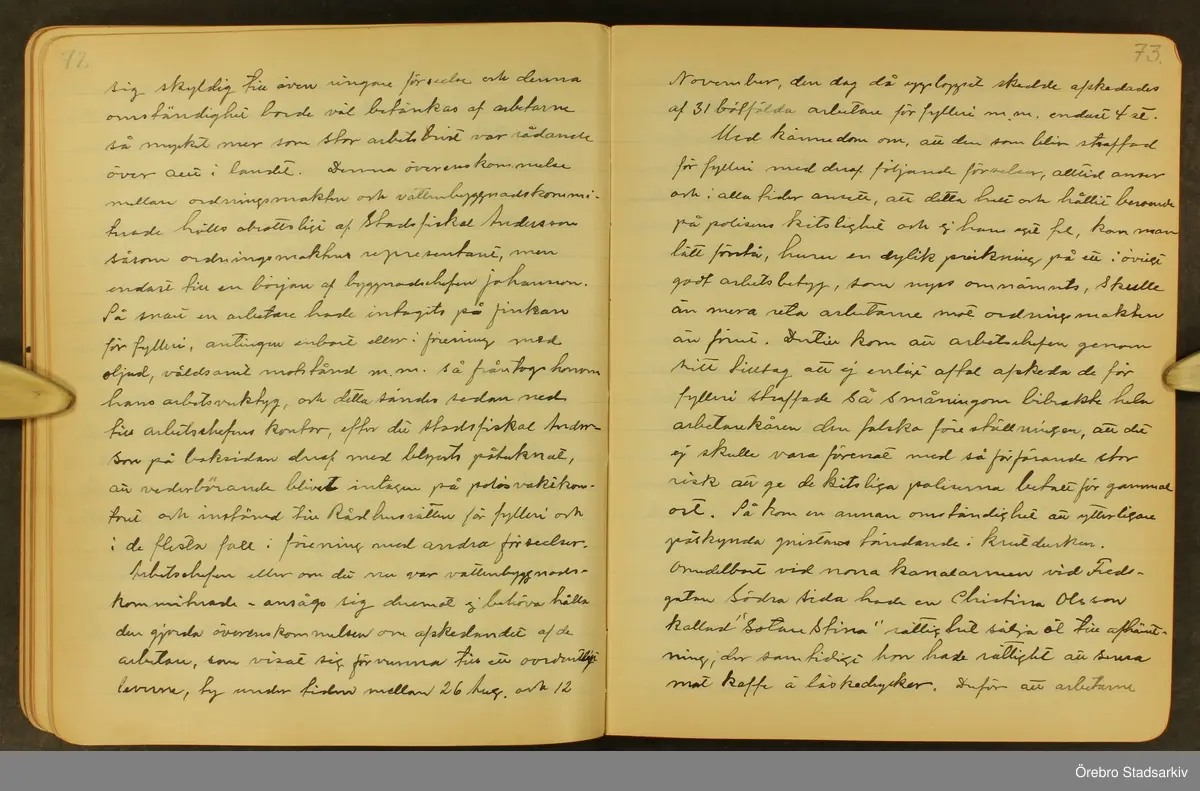 72.
sig skyldig till även ringare förseelse och denna
omständighet borde väl betänkas af arbetarne
så mycket mer som stor arbetsbrist var rådande
över allt i landet. Denna överenskommelse
mellan ordningsmakten och vattenbyggnadskommi-
terade hölls obrottsligt af Stadsfiskal Andersson
såsom ordningsmaktens representant, men
endast till en början af byggnadschefen Johansson.
Så snart en arbetare hade intagits på finkan
för fylleri, antingen enbart eller i förening med
oljud, våldsamt motstånd m.m. så fråntogs honom
hans arbetsverktyg, och detta sändes sedan ned
till arbetschefens kontor, efter det stadsfiskal Anders-
son på baksidan deraf med blyerts påtecknat,
att vederbörande blivet intagen på polisvaktkon-
toret och instämd till Rådhusrätten för fylleri och
i de flesta fall i förening med andra förseelser.
Arbetschefen eller om det nu var vattenbyggnads-
kommiterade - ansågo sig deremot ej behöva hålla
den gjorda överenskommelsen om afskedandet af de
arbetare, som visat sig förvunna till ett oordentligt
leverne, ty under tiden mellan 26 Aug. och 12
73.
November, den dag då upploppet skedde afskedades
af 31 bötfälda arbetare för fylleri m.m. endast 4 st.
Med kännedom om, att den som blir straffad
för fylleri med deraf följande förseelser, alltid anser
och i alla tider ansett, att detta helt och hållet beroende
på polisens kitslighet och ej hans eget fel, kan man
lätt förstå, huru en dylik prickning på ett i övrigt
godt arbetsbetyg, som nyss omnämnts, skulle
än mera reta arbetarne mot ordningsmakten
än förut. Dertill kom att arbetschefen genom
sitt tilltag att ej enligt aftal afskeda de för
fylleri straffade så småningom bibrakte hela
arbetarekåren den falska föreställningen, att det
ej skulle vara förenat med så förfärande stor
risk att ge de kitsliga poliserna betalt för gammal
ost. Så kom en annan omständighet att ytterligare
påskynda gnistans tändande i krutdurken.
Omedelbart vid norra kanalarmen vid Freds-
gatan Södra sida hade en Christina Olsson
kallad "Sotare Stina" rättighet sälja öl till afhämt-
ning, der samtidigt hon hade rättighet att servera
mat kaffe å läskedrycker. Derför att arbetarne
Örebro Stadsarkiv